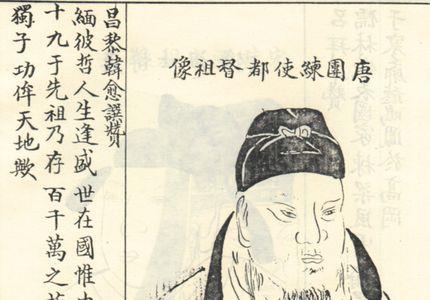 唐團練使都督祖像
昌黎韓愈譔贊
緬彼哲人生逢盛世在國惟
十九于先祖乃存百千萬之
獨子功侔天地歟